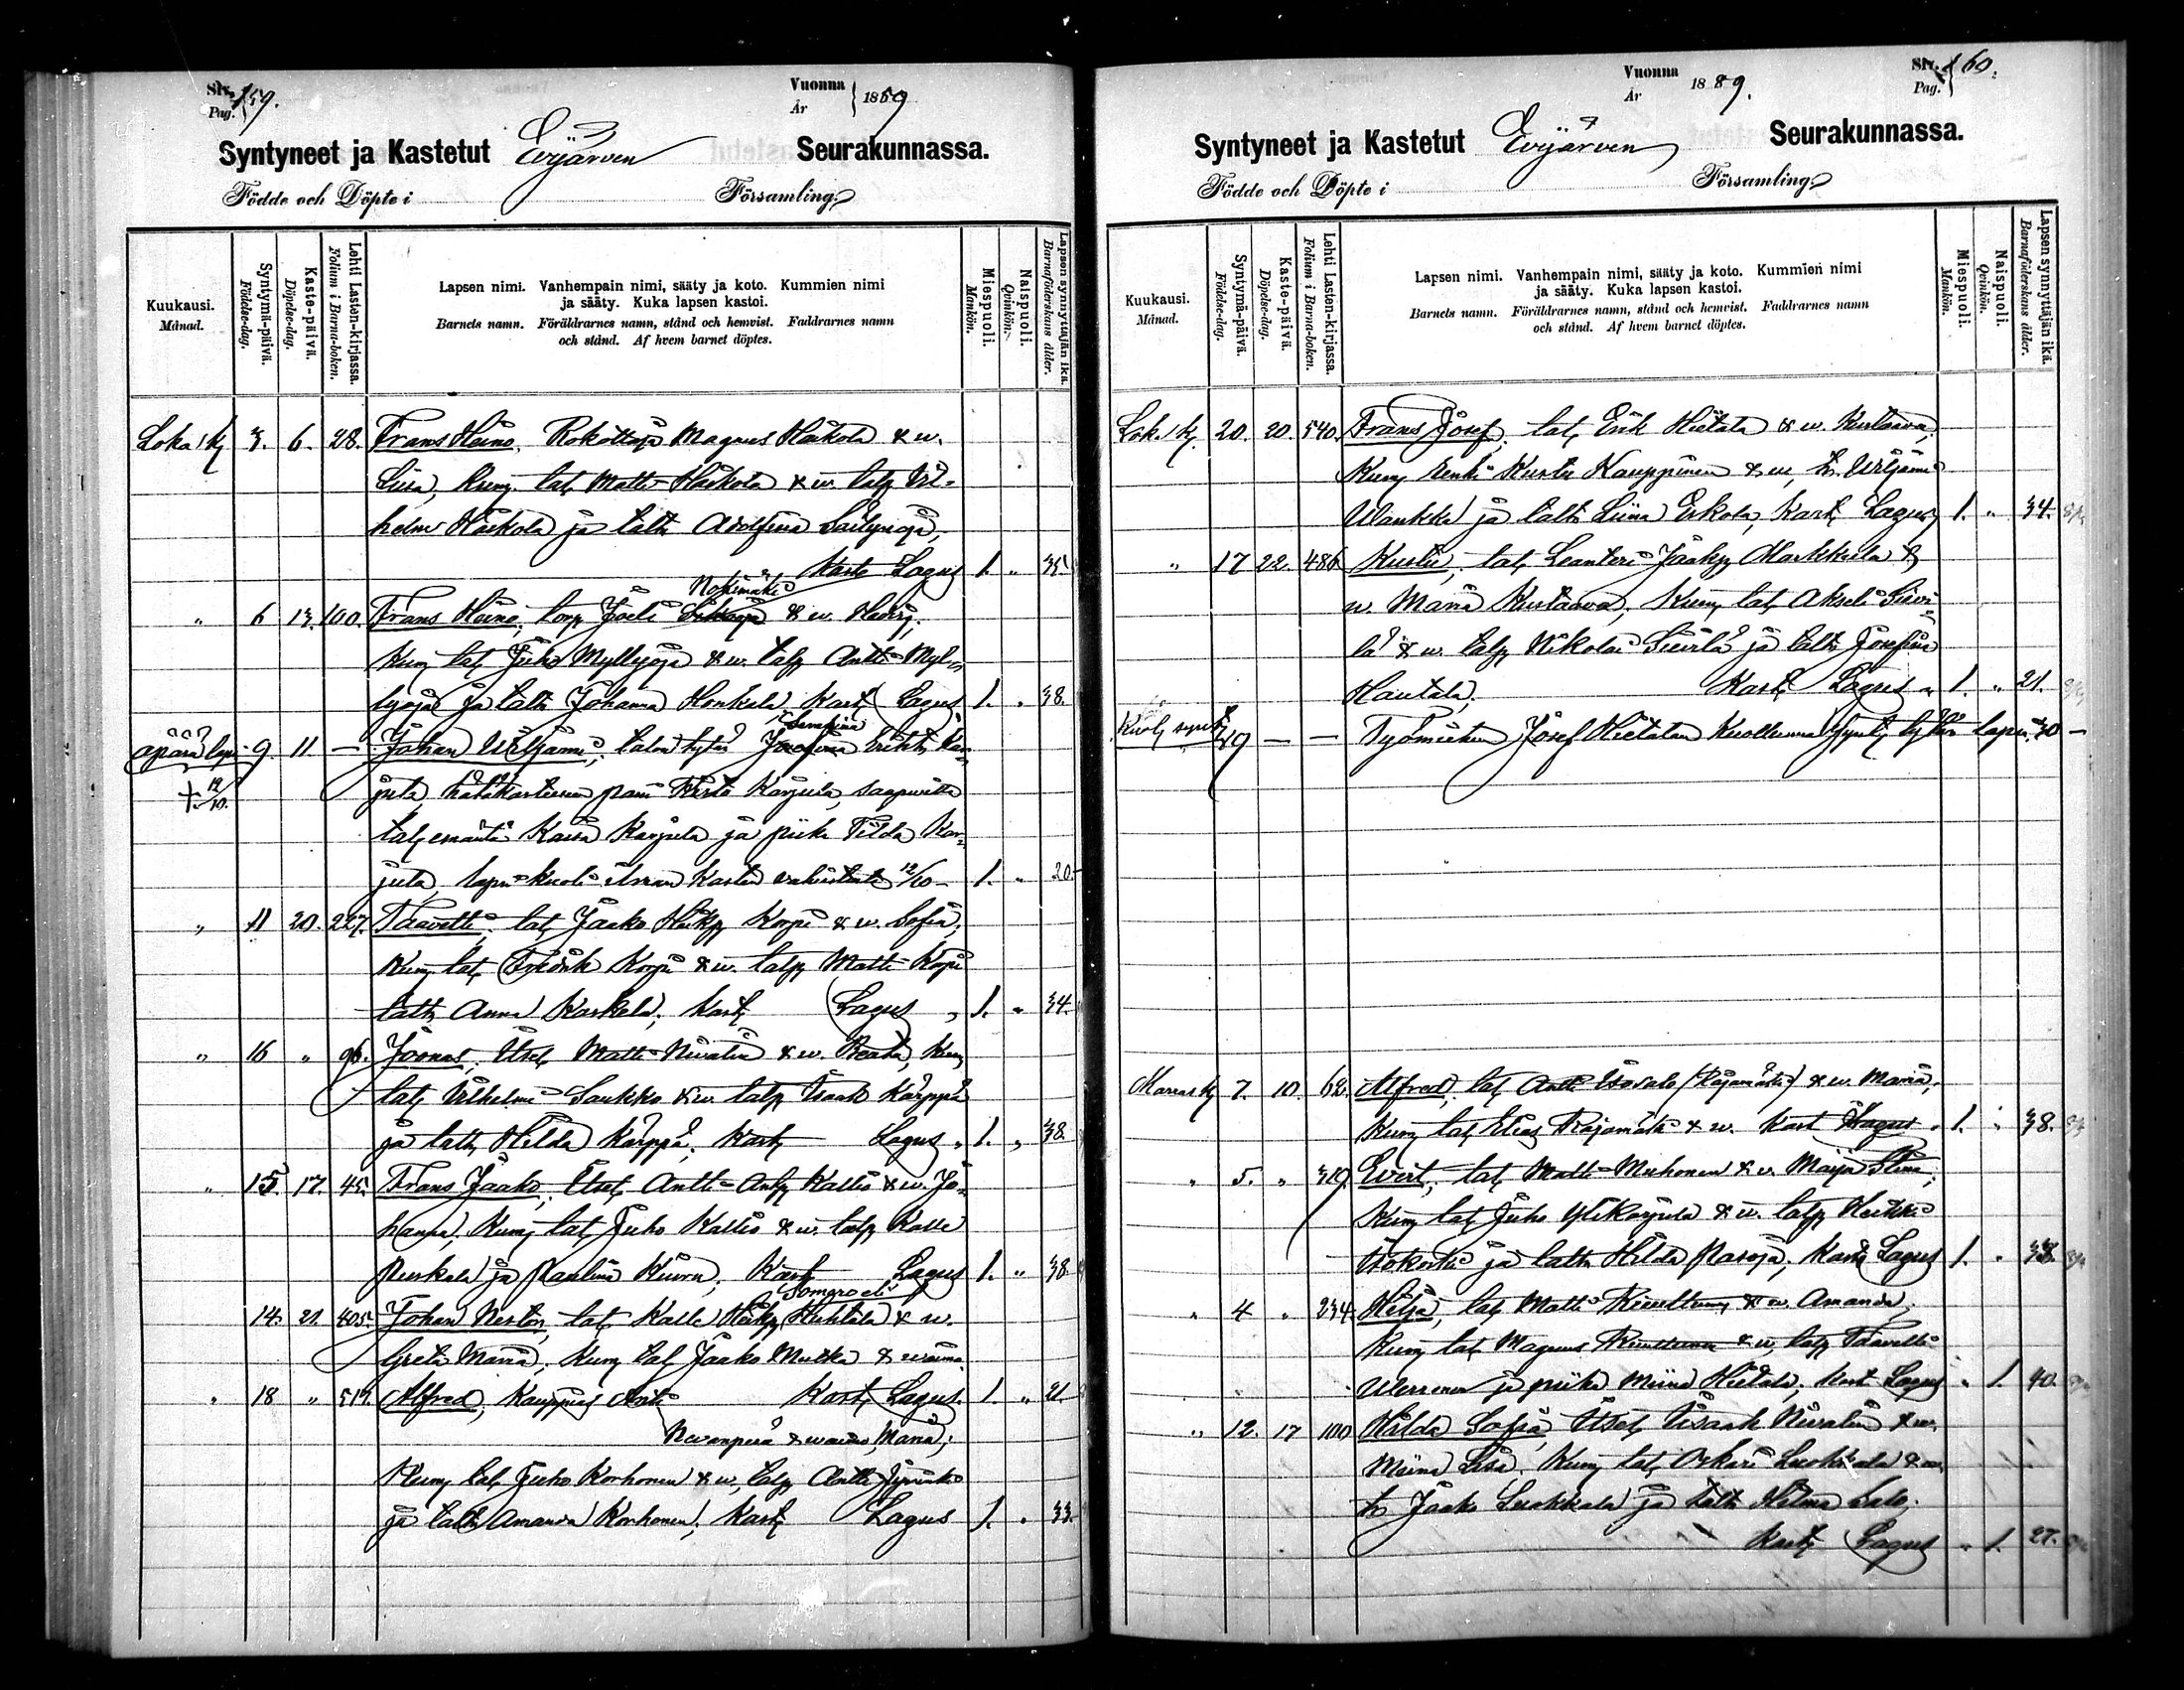 Siv. Pag. 159.
Vuonna År 1889
Syntyneet ja Kastetut Evijärven Seurakunnassa.
Födde och Döpte i Församling.
Kuukausi. Månad.
Syntymä-päivä. Födelse-dag.
Kaste-päivä. Döpelse-dag.
Lehti Lasten-kirjassa. Folium i Barna-boken.
Lapsen nimi. Vanhempain nimi, sääty ja koto. Kummien nimi
ja sääty. Kuka lapsen kastoi.
Barnets namn. Föräldrarnes namn, stånd och hemvist. Faddrarnes namn
och stånd. Af hvem barnet döptes.
Miespuoli. Mankön.
Naispuoli. Qvinkön.
Lapsen synnyttäjän ikä. Barnaföderskans ålder.
Loka/k 3. 6. 28. Frans Heino, Rokottaja Magnus Häkola & w.
Liisa, Kum. tal. Matti Häkola & w. talp Vil-
helm Häkola ja taltr Adolfina Sailynoja,
Kast. Lagus 1. " 35.
Nokimäki
" 6 13. 100. Frans Heino, torp Joeli & w. Hedvig,
Kum tal. Juho Myllyoja & w. talp Antti Myl-
lyoja ja taltr Johanna Honkola, Kast. Lagus 1. " 38.
Serafina
äpärä lapsi 9. 11. — Johan Viljami, talon tytär Erikstr Kar-
† 12/10. jula, hätäkasteessa Karjula,
tal. emäntä Kaisa Karjula ja piika Tilda Kar-
jula, lapsi kuoli ilman kasten vahvistusta 12/10 1. " 20.
" 11 20. 227. Taavetti, tal. Jaako Heikp Korpi & w. Sofia,
Kum. tal. Fredrik Korpi & w. talp Matti Korpi
taltr Anna Kaskela, Kast. Lagus 1. " 34.
" 16 " 96. Joonas, Itsel. Matti Nivalin & w. Beata, Kum
tal. Vilhelmi Saukko & w. talp Isaak Kärppä
ja taltr Hilda Kärppä, Kast. Lagus " 1. " 38.
" 15. 17. 45. Frans Jaako, Itsel. Antti Antp Kallio & w. Jo-
hanna, Kum tal. Juho Kallio & w. talp Kalle
Purkala ja Paulina Kiuru, Kast. Lagus 1. " 38.
14. 21. 405. Johan Nestor, tal. Kalle Heikp Huhtala & w.
Greta Maria, Kum tal. Jaako Mutka & waimo
" 18 " 517. Alfred, Kauppias Antti Kast. Lagus. 1. " 21.
Nevanperä & waimo Maria,
Kum tal. Juho Korhonen & w. talp Antti
ja taltr Amanda Korhonen, Kast. Lagus 1. " 33.
Siv. Pag. 160.
Vuonna År 1889.
Syntyneet ja Kastetut Evijärven Seurakunnassa.
Födde och Döpte i Församling.
Kuukausi. Månad.
Syntymä-päivä. Födelse-dag.
Kaste-päivä. Döpelse-dag.
Lehti Lasten-kirjassa. Folium i Barna-boken.
Lapsen nimi. Vanhempain nimi, sääty ja koto. Kummien nimi
ja sääty. Kuka lapsen kastoi.
Barnets namn. Föräldrarnes namn, stånd och hemvist. Faddrarnes namn
och stånd. Af hvem barnet döptes.
Miespuoli. Mankön.
Naispuoli. Qvinkön.
Lapsen synnyttäjän ikä. Barnaföderskans ålder.
Lok./k. 20. 20. 540. Frans Josef, tal. Erik Hietala & w. Kustaava,
Kum. Renki Kustu Kauppinen & w, tr. Viljami
Ulankka ja taltr Liina Erkola, Kast. Lagus 1. " 34.
" 17 22. 486 Kustu, tal. Leanteri Jaakp Markkula &
w Maria Kustaava, Kum. tal. Akseli Sievi-
lä & w. talp Nikolai Sievilä ja taltr Josefina
Hautala, Kast. Lagus " 1. " 21.
Kuol. synt. 29 — — Työmiehen Josef Hietalan Kuollunna synt. lapsi. 30 —
Marras/k 7. 10. 62. Alfred, tal. Antti Isosalo (Rajamäki) & w. Maria,
Kum tal. Elias Rajamäki & w. Kast. Lagus. 1. " 38.
" 5. " 319 Evert, tal. Matti Muhonen & w. Maija Stina,
Kum. tal. Juho Ylikarjula & w. talp Heikki
Isokoski ja taltr Hilda Pasoja, Kast. Lagus 1. " 38.
" 4 " 234 Hilja, tal. Matti & w. Amanda,
Kum tal. Magnus & w, talp Taavetti
ja piika Miina Hietala, Kast. Lagus " 1. 40.
" 12. 17 100 Hilda Sofia, Itsel. Iisaak Nivalin & w.
Miina Lisa, Kum. tal. Oskari Luokkala & w.
tr Jaako Luokkala ja taltr Hilma Salo.
Kast. Lagus " 1. 27.